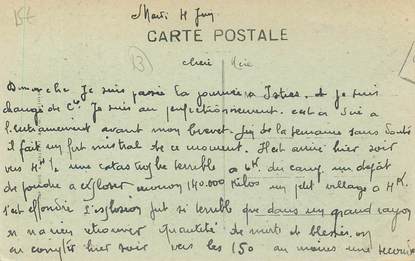 15f
Mardi 4 Juin
CARTE POSTALE
13
chère
Dimanche Je suis passé la journée à Istres. et je suis
changé de Cie Je suis au perfectionnement. c'est à dire à
l'entrainement avant mon brevet. de semaine sans
il fait un fort mistral de ce moment. Il est arrivé hier soir
vers 4h ½ une catastrophe terrible à 6K. du camp un dépôt
de poudre a explosé environ 140.000 Kilos un petit village à 4K.
s'est effondré l'explosion fut si terrible que dans un grand rayon
on n'a rien retrouver quantité de morts et blessés. on
en compter hier soir vers les 150 au moins une